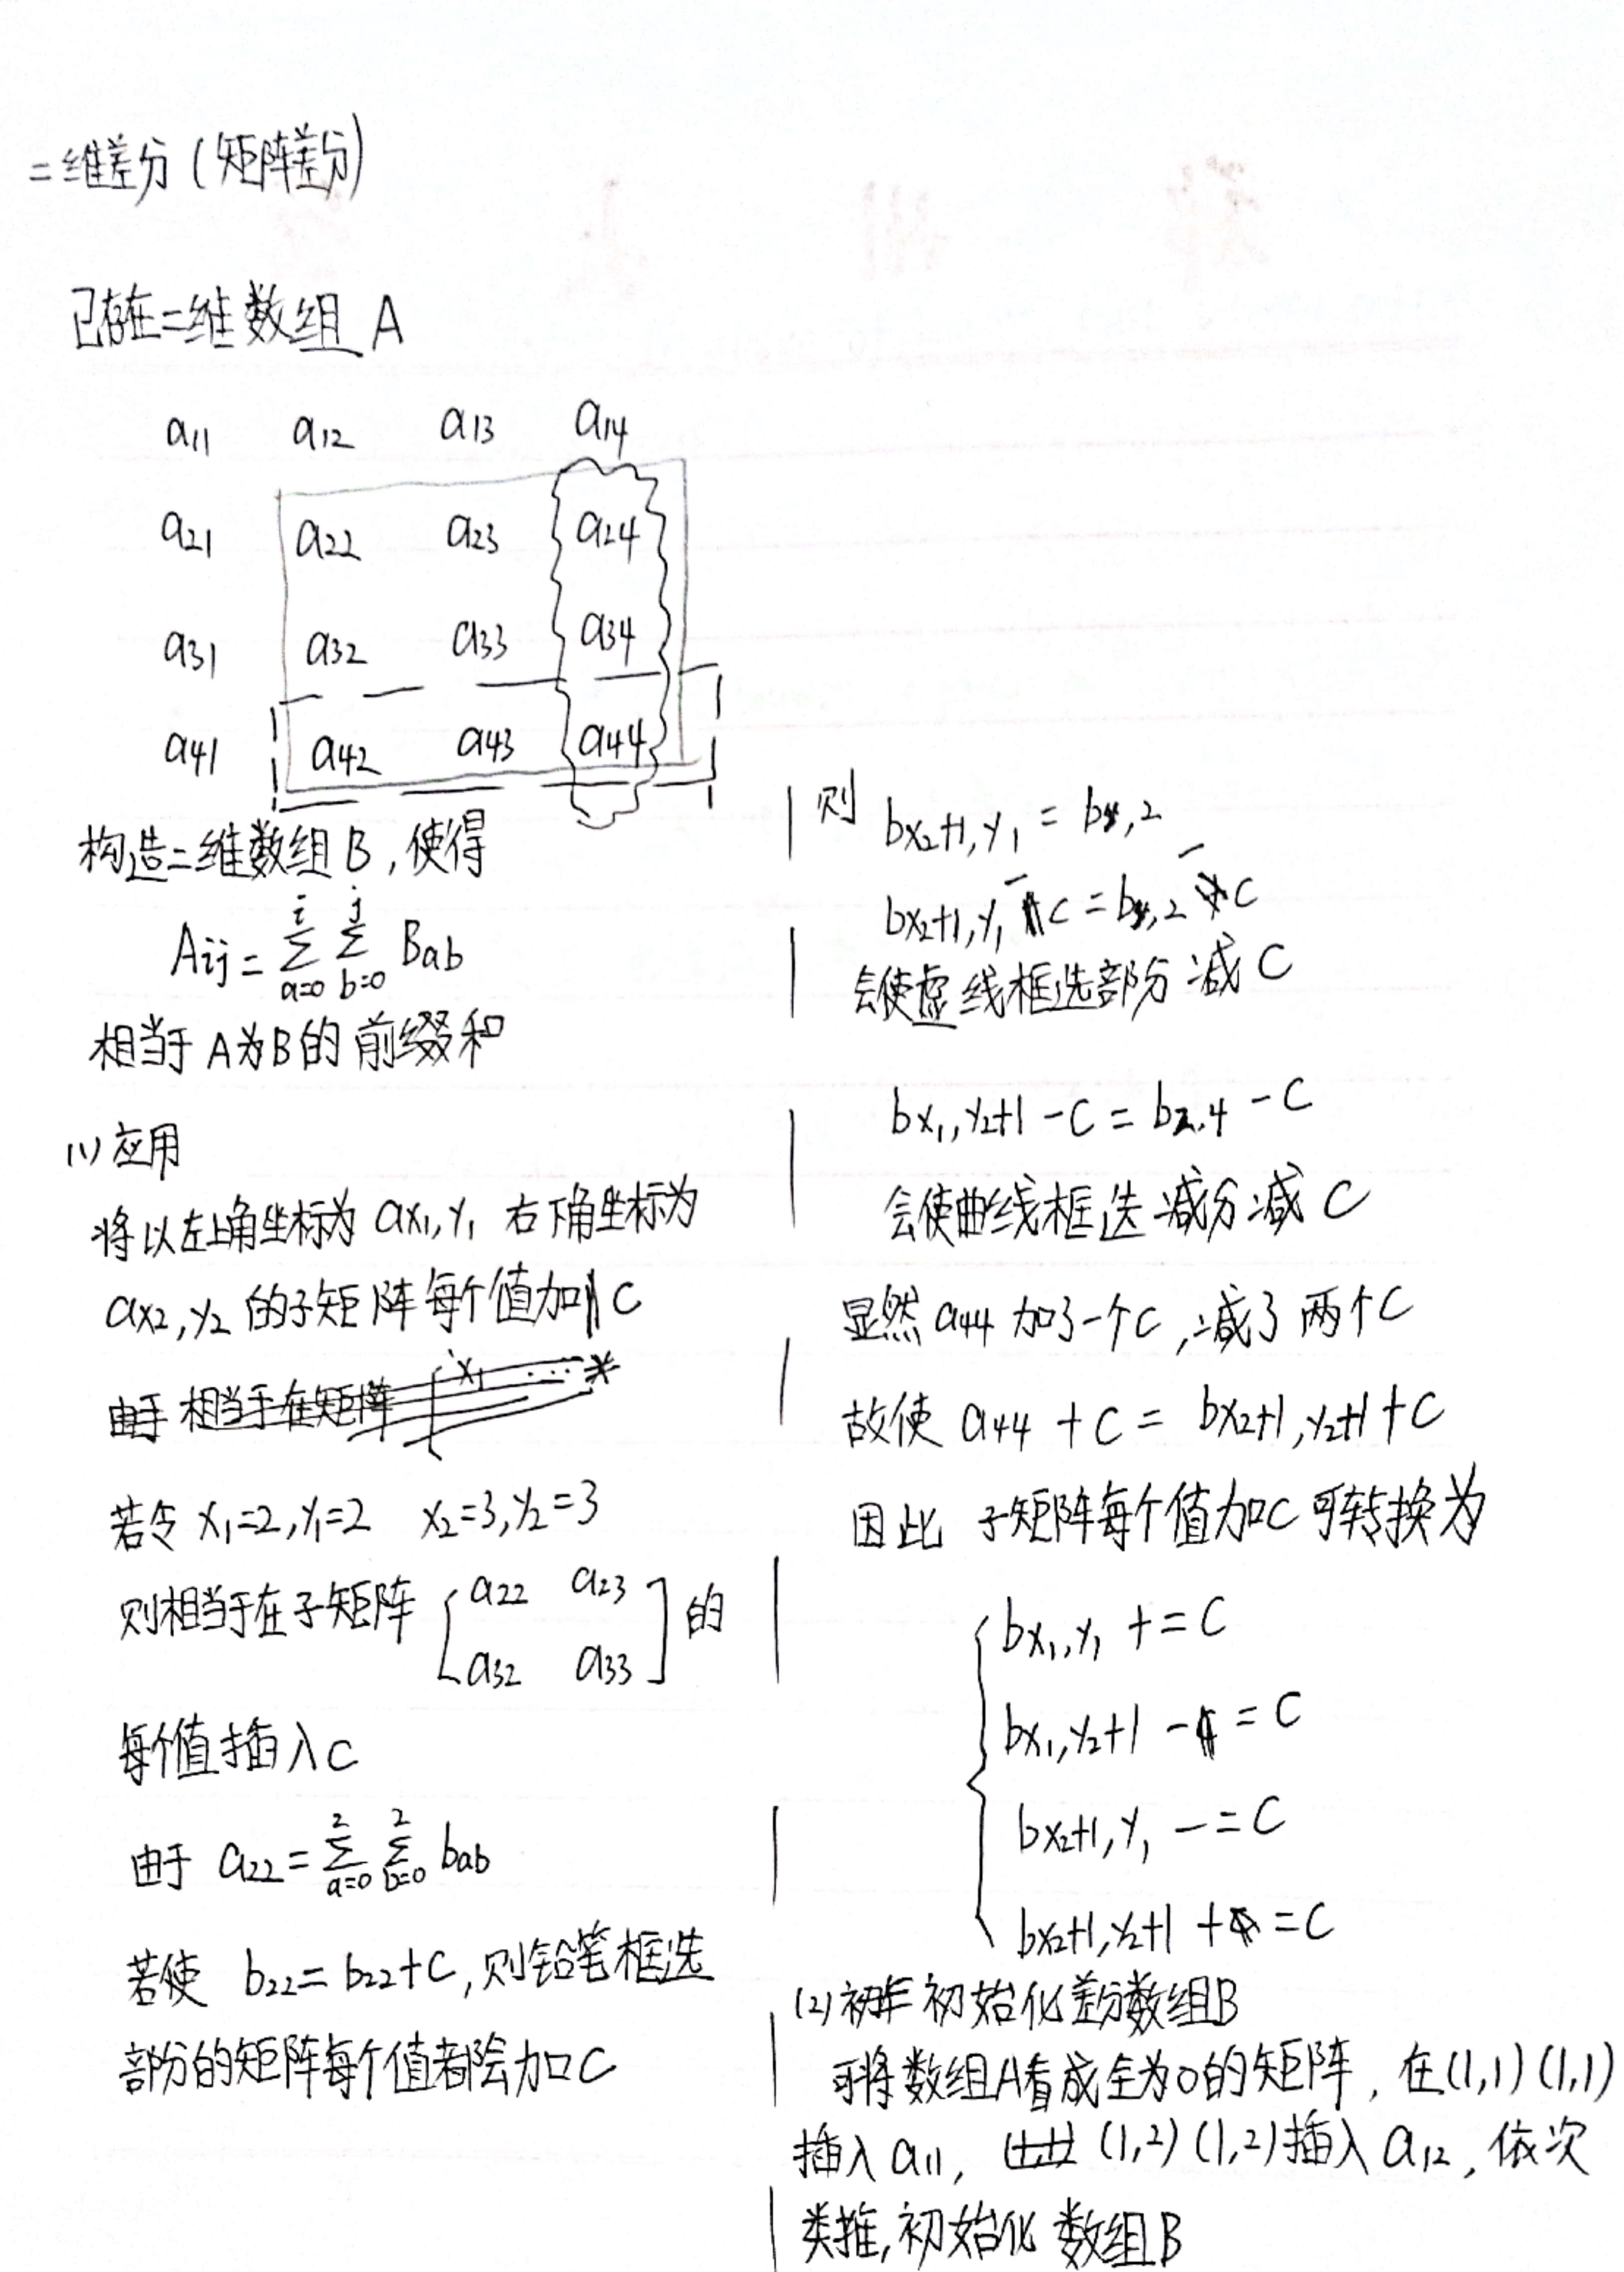 二维差分（矩阵差分）
已存在二维数组 A
a11 a12 a13 a14
a21 a22 a23 a24
a31 a32 a33 a34
a41 a42 a43 a44
构造二维数组B,使得
Aij = ∑_{a=0}^{i} ∑_{b=0}^{j} Bab
相当于A为B的前缀和
(1)应用
将以左上角坐标为 ax₁,y₁ 右下角坐标为
ax2,y2 的子矩阵每个值加 C
由于 相当于在矩阵
若令 x₁=2,y₁=2 x₂=3,y₂=3
则相当于在子矩阵 [a22 a23
a32 a33] 的
每个值插入C
由于 a22 = ∑_{a=0}^{2} ∑_{b=0}^{2} bab
若使 b22 = b22+C,则铅笔框选
部分的矩阵每个值都会加C
则 bx₂+1,y₁ = b,2
bx₂+1,y₁ - C = b,2 - C
会使虚线框选部分减C
bx₁,y₂+1 - C = b2.4 - C
会使曲线框选减分减C
显然 a44 加了一个C,减了两个C
故使 a44 + C = bx₂+1,y₂+1 + C
因此 子矩阵每个值加C可转换为
{ bx₁,y₁ += C
bx₁,y₂+1 -= C
bx₂+1,y₁ -= C
bx₂+1,y₂+1 += C
(2) 初始化差分数组B
可将数组A看成全为0的矩阵, 在(1,1)(1,1)
插入a11, (1,2)(1,2)插入a12, 依次
类推,初始化数组B